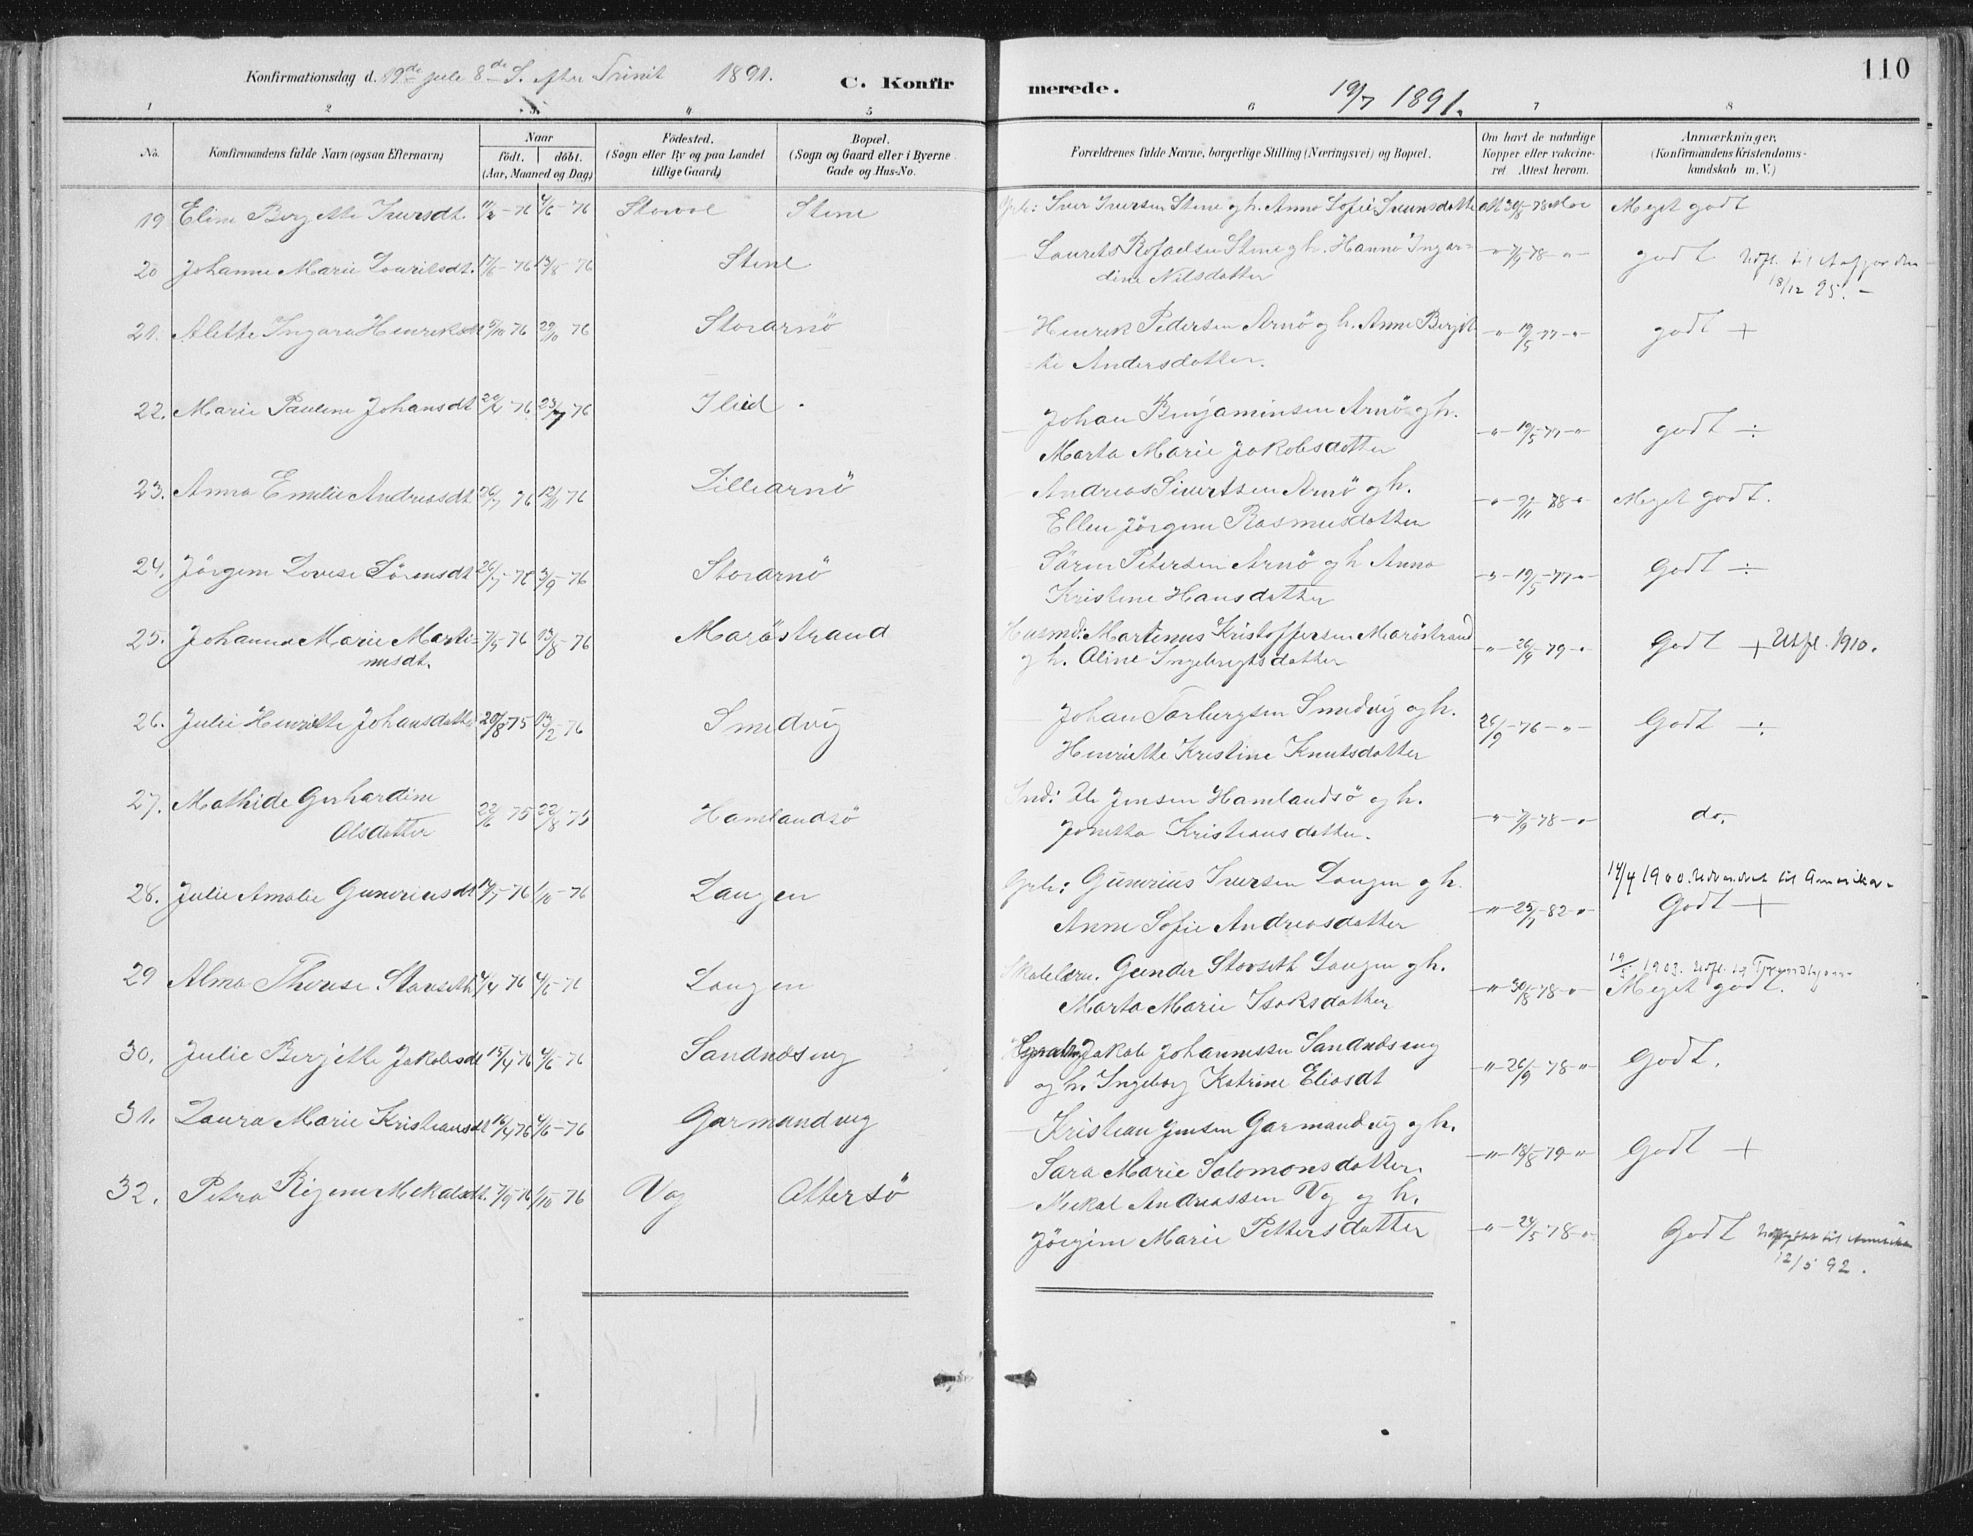 Konfirmationsdag d. 19de Juli 8de S. efter Trinit 1891.
C. Konfirmerede.
19/7 1891.
110
1 2 3 4 5 6 7 8
No. Konfirmandens fulde Navn (ogsaa Efternavn) Naar født. døbt. (Aar, Maaned og Dag) Fødested. (Sogn eller By og paa Landet tillige Gaard) Bopæl. (Sogn og Gaard eller i Byerne Gade og Hus-No. Forældrenes fulde Navne, borgerlige Stilling (Næringsvei) og Bopæl. Om havt de naturlige Kopper eller vakcineret. Attest herom. Anmærkninger, (Konfirmandens Kristendomskundskab m. V.)
19 Eline Berjette Iversdt. 4/6 76 Stene Iver Iversen Stene g h. Anna Sofie Svensdatter 30/8 78 Meget godt
20 Johanne Marie Louritsdt. 76 13/8 76 Stene Laurits Rafaelsen Stene g h. Hanna Ingar=
dine Nilsdatter 7/9 78 godt Udfl. til
18/12 95. -
21. Alette Ingara Henriksdt 5/10 76 29/10 76 Storarnö Henrik Pedersen Arnö g h. Anne Berjit
te Andersdatter. 19/5 77 godt +
22. Marie Pauline Johansdt 76 23/7 76 Ilied. Johan Benjaminsen Arnö g h.
Marta Marie Jakobsdatter 19/5 77 godt ÷
23. Anna Emilie Andreasdt. 76 12/11 76 Lillearnö Andreas Sivertsen Arnö g h.
Ellen Jörgine Rasmusdatter 78 Meget godt.
24. Jörgine Lovise Sörensdt 26/7 76 3/9 76 Storarnö Sören Petersen Arnö g h Anna
Kristine Hansdatter 19/5 77 Godt ÷
25. Johanna Marie Marti=
nusdt. 7/5 76 13/8 76 Maröstrand Husmd: Martinus Kristoffersen Maröstrand
g h. Oline Ingebrigtsdatter 26/9 79 Godt + Utfl. 1910.
26. Julie Henriette Johansdatter 20/8 75 13/2 76 Smedvig Johan Torbergsen Smedvig og h.
Henriette Kristine Knutsdatter 26/9 76 Godt ÷
27. Mathide Gerhardine
Olsdatter 22/6 75 22/8 75 Hamlandsö Ind: Ole Jensen Hamlandsö og h.
Jonetta Kristiansdatter. 7/9 78 do.
28. Julie Amalie Gunneriusdt 76 1/10 76 Langen Gunerius Iversen Langen g h.
Anne Sofie Andreasdatter 82 14/4 1900. Udvandret til Amerika.
Godt +
29 Alma Therese Stavseth 4/4 76 4/6 76 Langen Skolelærer. Gunder Stavseth Langen g h.
Marta Marie Isaksdatter 30/8 78 19/5 1903. Utfl. til Trondhjem
Meget godt.
30. Julie Berjette Jakobsdt 15/4 76 4/6 76 Sandnæseng Jakob Johannesen Sandnæseng
og h. Ingeborg Katrine Eliasdt 26/9 78 Godt.
31. Laura Marie Kristiansdt 16/4 76 4/6 76 Garmandvig Kristian Jensen Garmandvig og h.
Sara Marie Salomonsdatter. 79 Godt +
32. Petra Regine Mekalsdt. 7/9 76 1/10 76 Vag Attersö Mekal Andreassen Vag og h.
Jörgine Marie Pettersdatter 24/5 78 Godt Udflyttet til Amerika
12/5 92.